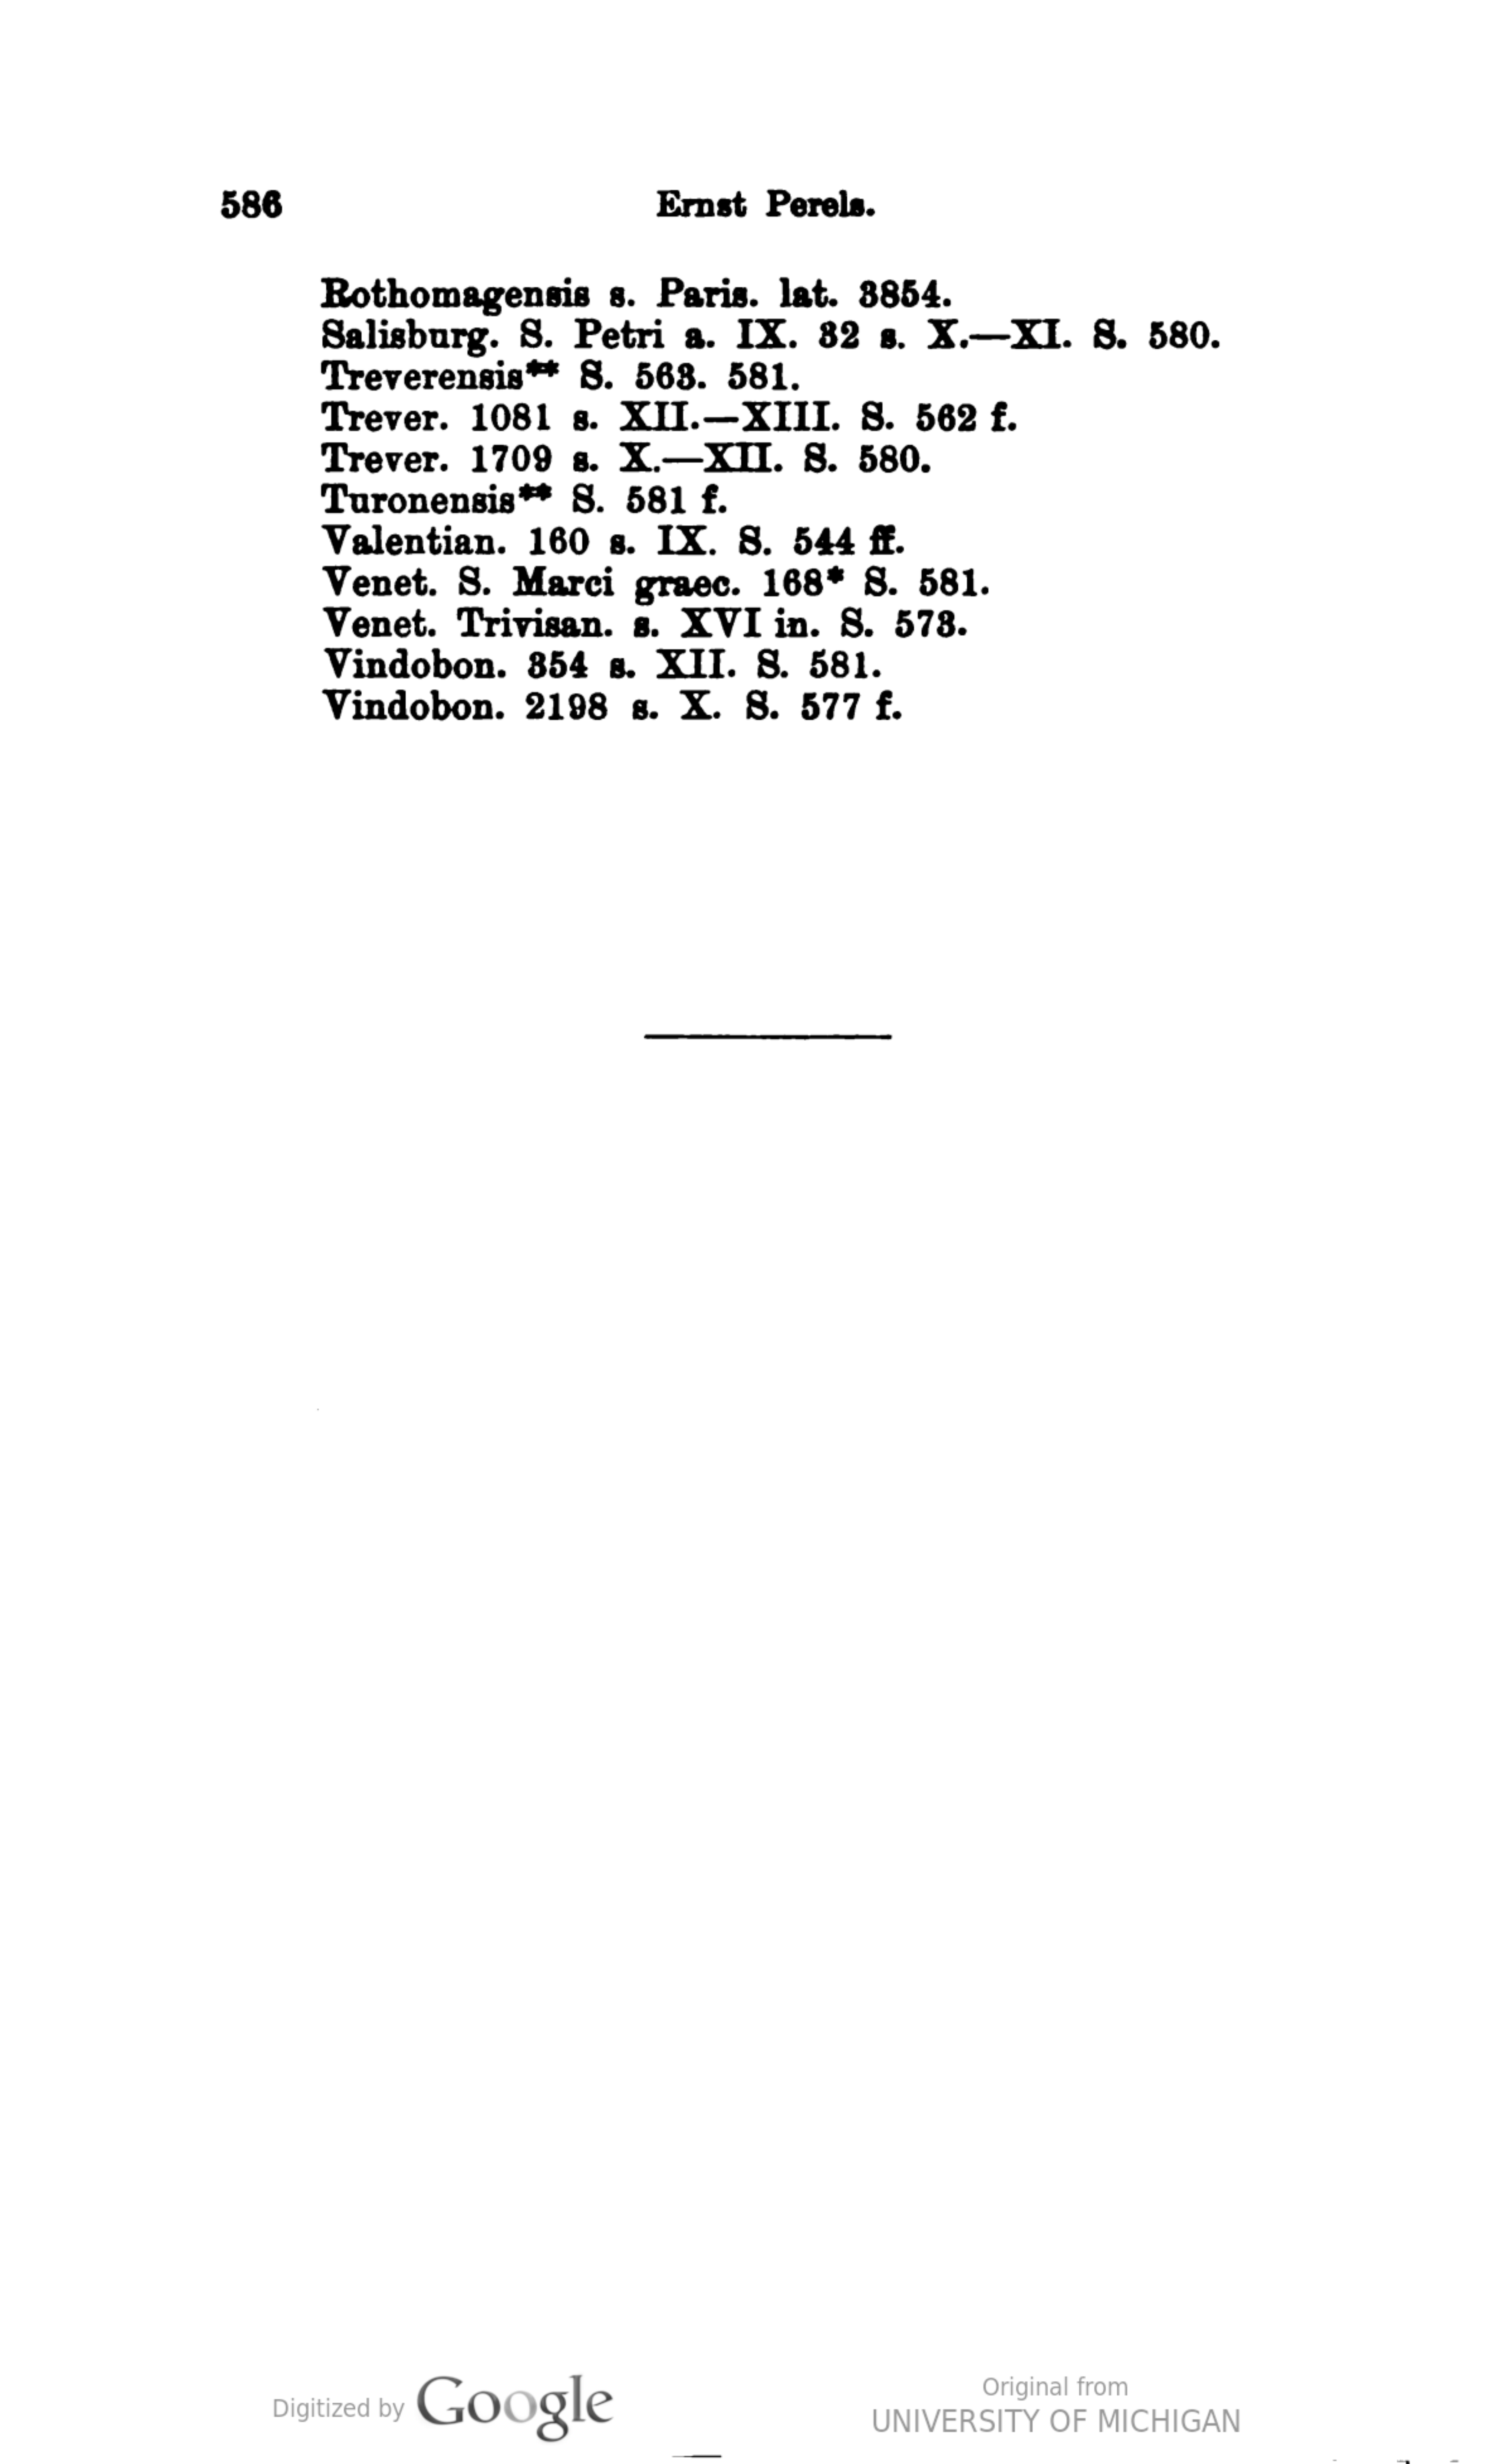 586 Ernst Perels.
Rothomagensis s. Paris. lat. 3854.
Salisburg. S. Petri a. IX. 32 s. X.—XI. S. 580.
Treverensis** S. 563. 581.
Trever. 1081 s. XII.—XIII. S. 562 f.
Trever. 1709 s. X.—XII. S. 580.
Turonensis** S. 581 f.
Valentian. 160 s. IX. S. 544 ff.
Venet. S. Marci graec. 168* S. 581.
Venet. Trivisan. s. XVI in. S. 573.
Vindobon. 354 s. XII. S. 581.
Vindobon. 2198 s. X. S. 577 f.
Digitized by Google
Original from
UNIVERSITY OF MICHIGAN